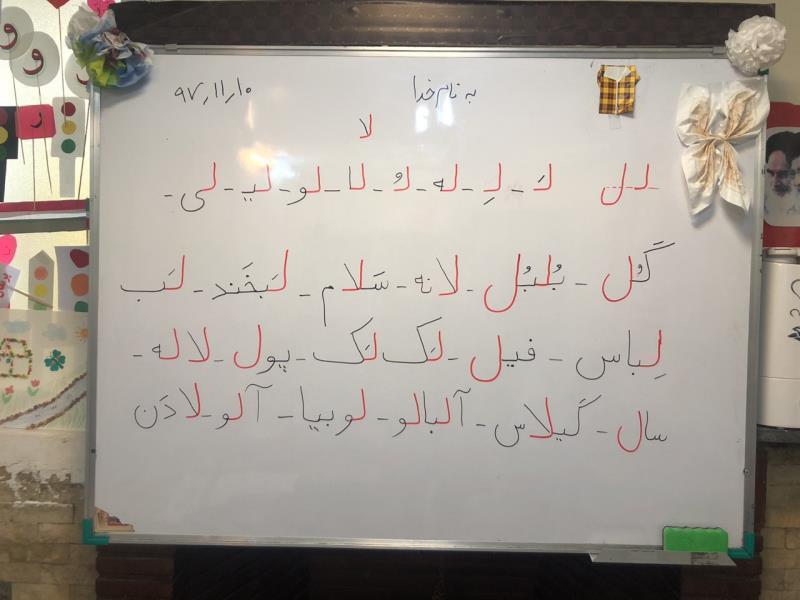 به نام خدا ۹۷٫۱۱٫۱۰
لا
لـ ل لَـ لِـ - لـه - لُـ - لا - لو - لیـ - لی -
گُل - بُلبُل - لانه - سَلام - لَبخَند - لَب
لِباس - فیل - لَک لَک - پول - لاله -
سال - گیلاس - آلبالو - لوبیا - آلو - لادَن
و
ر